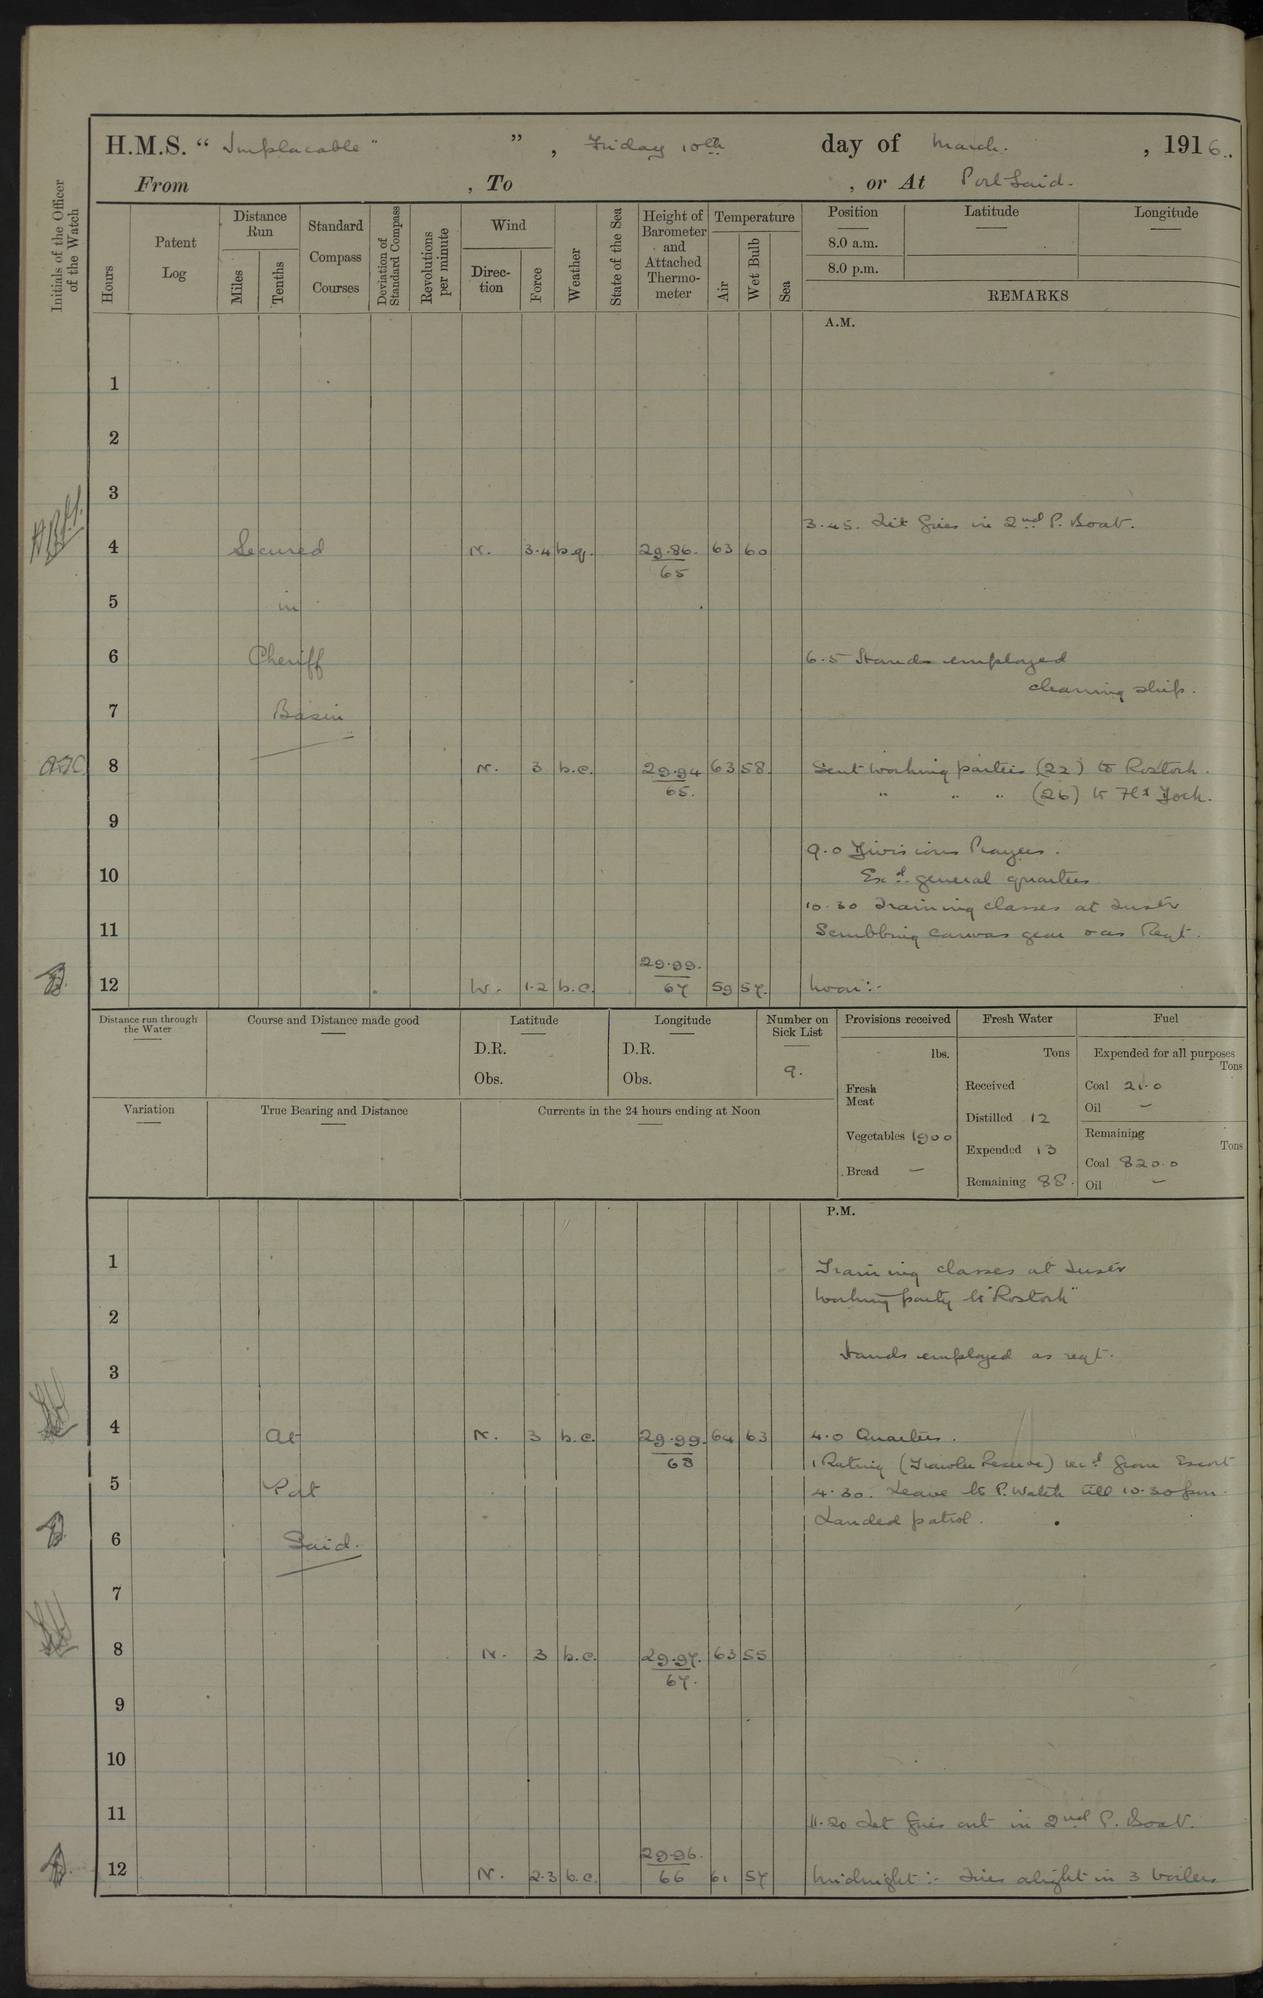 H.M.S. " Implacable " " , Friday 10th day of March. , 1916.
From , To , or At Port Said.
Initials of the Officer of the Watch
Hours
Patent Log
Distance Run
Miles
Tenths
Standard Compass Courses
Deviation of Standard Compass
Revolutions per minute
Wind
Direction
Force
Weather
State of the Sea
Height of Barometer and Attached Thermometer
Temperature
Air
Wet Bulb
Sea
Position
Latitude
Longitude
8.0 a.m.
8.0 p.m.
REMARKS
A.M.
1
2
3
3.45. Lit fires in 2nd P. Boat.
4 Secured N. 3.4 b.q. 29.86. 63 60
65
5 in
6 Cheriff 6.5 Hands employed
cleaning ship.
7 Basin
8 N. 3 b.c. 29.94 63 58. Sent working parties (22) to Rostock.
65. " " " (26) to Flt Dock.
9
9.0 Divisions Prayers.
10 Exd. general quarters
10.30 Training classes at Instr
11 Scrubbing canvas gear & as Reqt.
29.99.
12 W. 1.2 b.c. 67 59 57. Noon:-
Distance run through the Water
Course and Distance made good
Latitude
D.R.
Obs.
Longitude
D.R.
Obs.
Number on Sick List
9.
Provisions received
lbs.
Fresh Meat
Vegetables 1900
Bread —
Fresh Water
Tons
Received
Distilled 12
Expended 13
Remaining 88.
Fuel
Expended for all purposes
Tons
Coal 21.0
Oil —
Remaining
Tons
Coal 820.0
Oil —
Variation
True Bearing and Distance
Currents in the 24 hours ending at Noon
P.M.
1 Training classes at Instr
Working party to "Rostock"
2
Hands employed as reqt.
3
4 At N. 3 b.c. 29.99. 64 63 4.0 Quarters.
68 1 Rating (Trawler Reserve) recd from Escort
5 Port 4.30. Leave to P. Watch till 10.30 pm.
Landed patrol.
6 Said.
7
8 N. 3 b.c. 29.97. 63 55
67.
9
10
11 11.20 Let fires out in 2nd P. Boat.
29.96.
12 N. 2.3 b.c. 66 61 57 Midnight:- Fires alight in 3 boilers